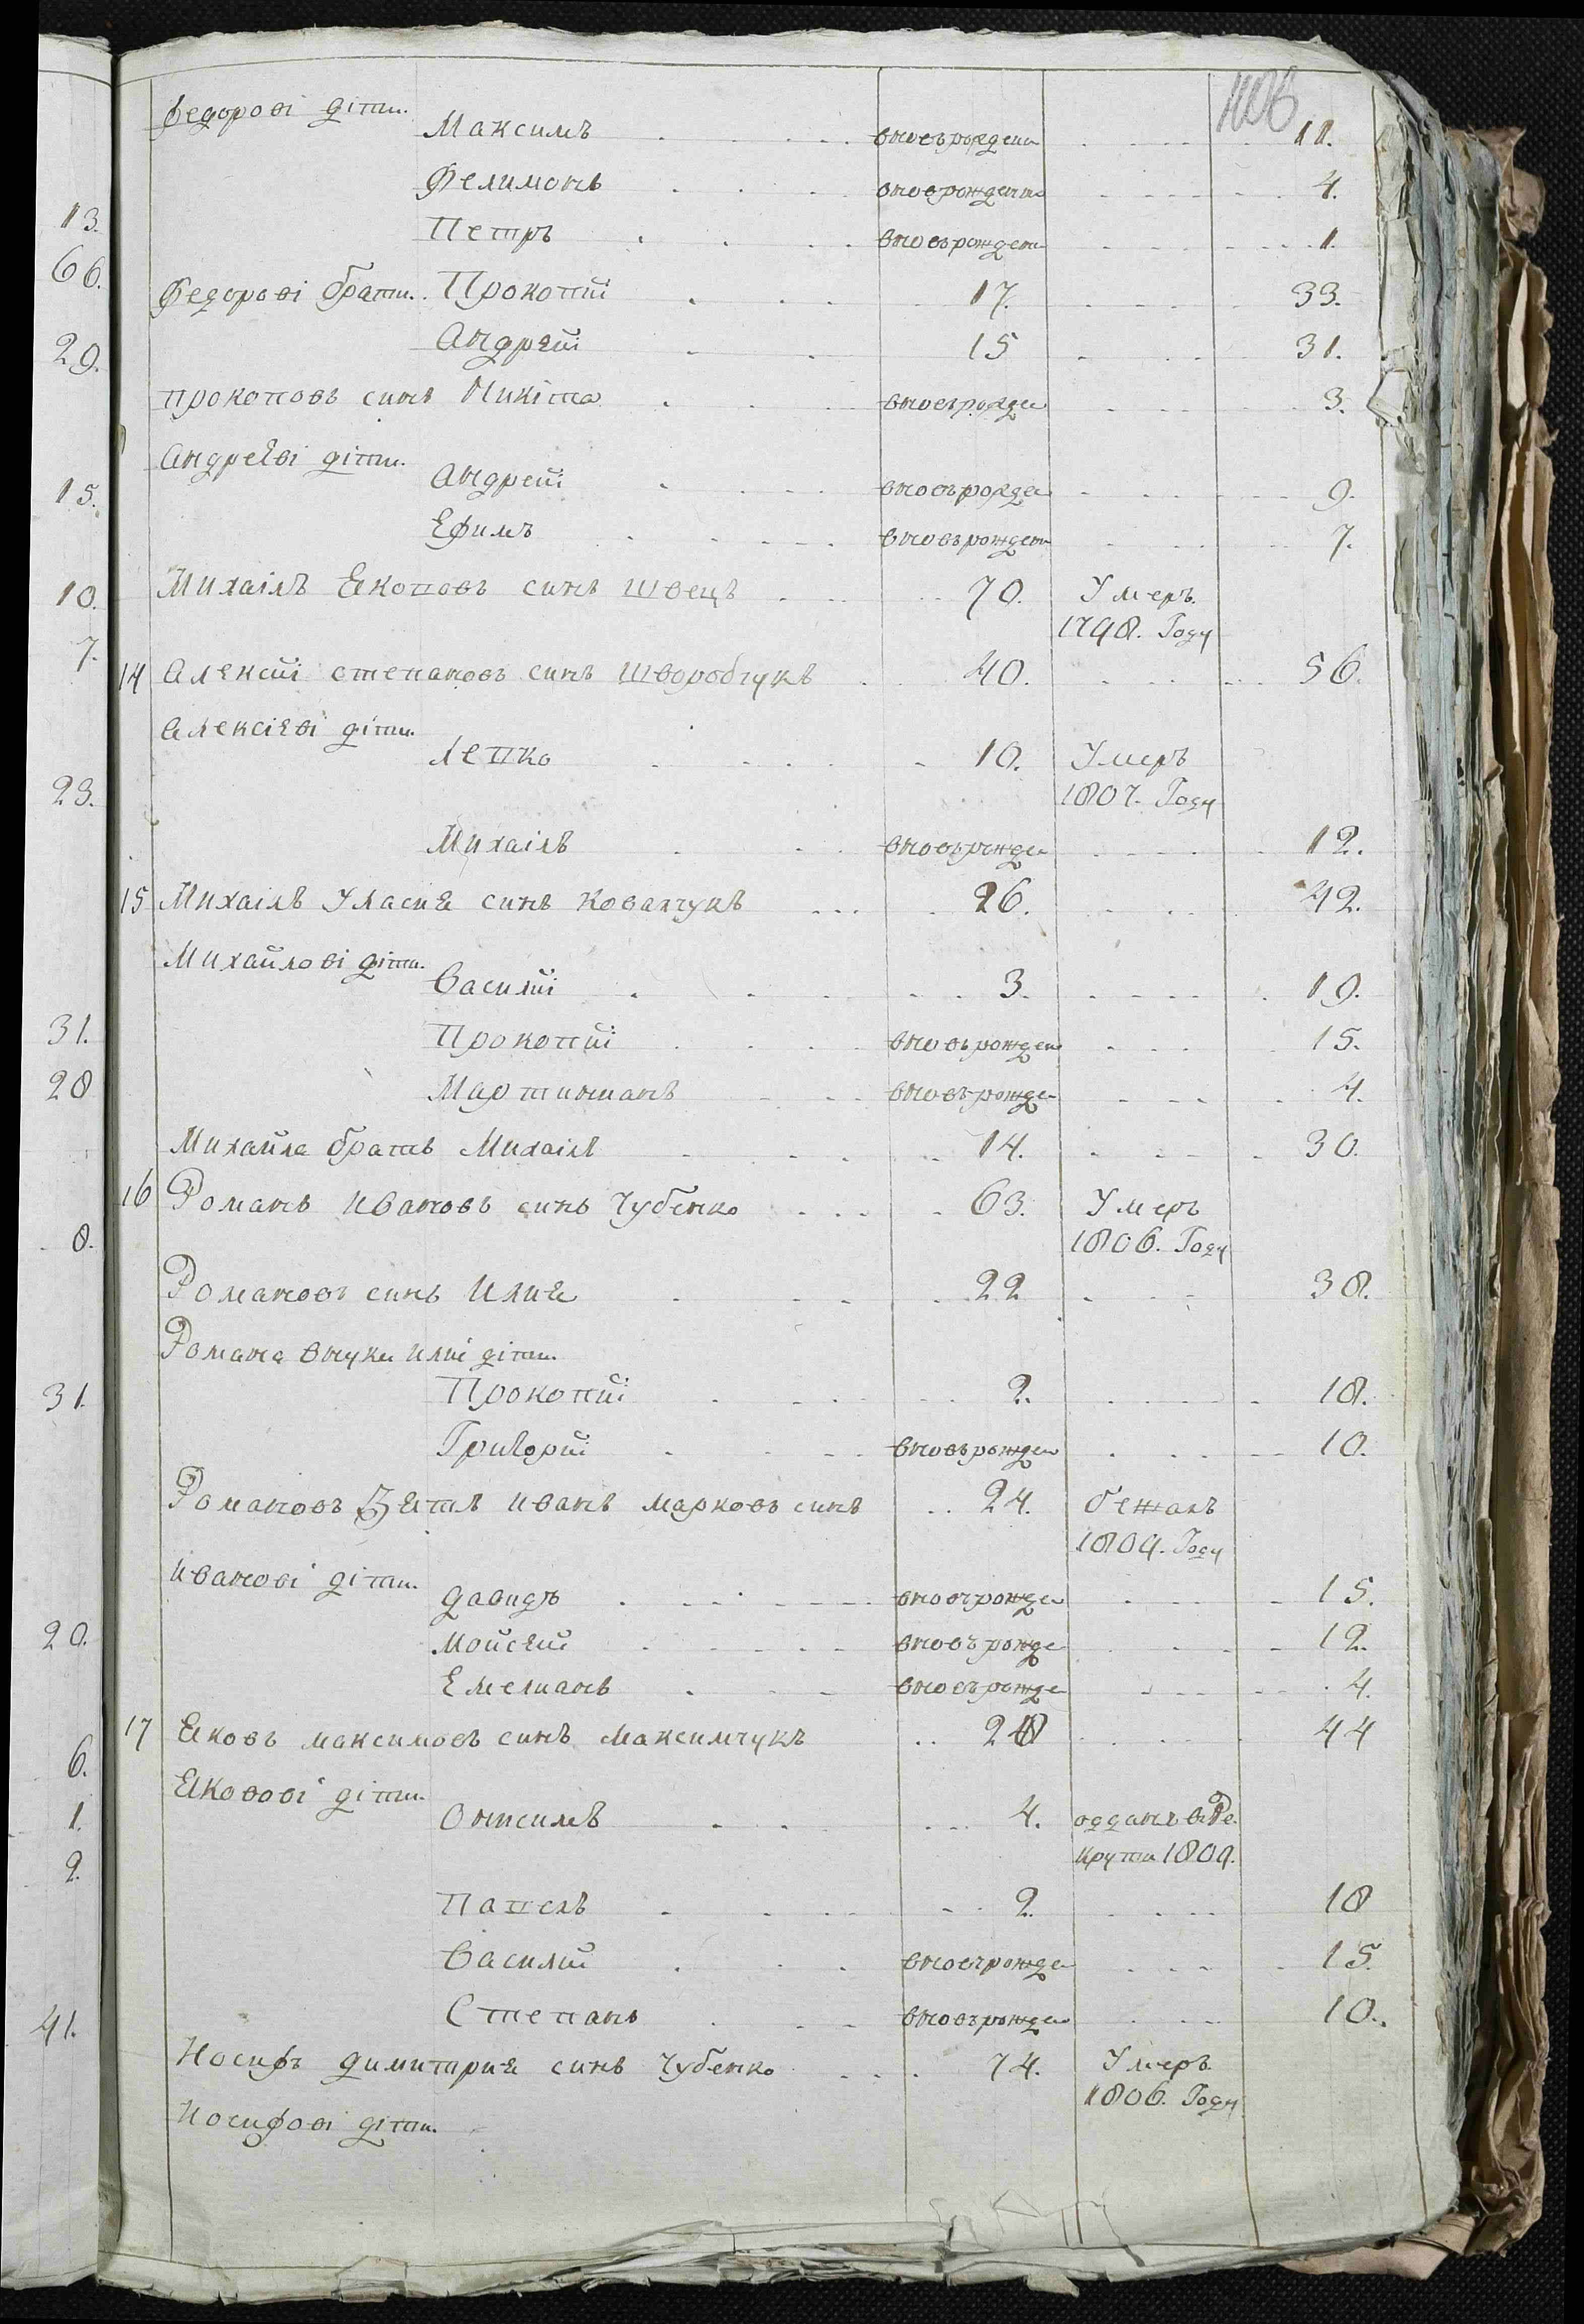 13.
66.
29.
15.
10.
7.
23.
31.
28
8.
31.
20.
6.
1.
2.
41.
Федорові діти.
Максимъ вновъ рожден 11.
Фелимонъ вновъ рожденни 4.
Петръ вновъ рожден 1.
Федорові брати. Прокопій 17. 33.
Андрей 15 31.
Прокоповъ синъ Микіта вновъ рожде 3.
Андреѣві діти.
Андрей вновъ рожде 9.
Ефимъ вновъ рожден 7.
Михаілъ Якоповъ синъ Швецъ 70. Умеръ.
1798. Году
14 Алексій степановъ синъ Шворобчукъ 40. 56.
Алексіеві діти.
Лепко 10. Умеръ
1807. Году
Михаілъ вновъ рожде 12.
15 Михаілъ Уласия синъ Ковалчукъ 26. 42.
Михайлові діти.
Василій 3. 19.
Прокопій вновъ рожден 15.
Мартиниянъ вновъ рожде 4.
Михайла братъ Михаілъ 14. 30.
16 Романъ Ивановъ синъ Чубенко 63. Умеръ
1806. Году
Романовъ синъ Илия 22 38.
Романа внуки Иліи діти.
Прокопій 2. 18.
Григорій вновъ рожден 10.
Романовъ Зять Иванъ Марковъ синъ 24. бежалъ
1809. Году
Иванові діти.
Давидъ вновъ рожде 15.
Мойсей вновъ рожде 12.
Емелианъ вновъ рожде 4.
17 Яковъ Максимовъ синъ Максимчукъ 28 44
Якокові діти.
Онисимъ 4. отданъ в Ре-
крути 1809.
Папелъ 2. 18
Василій вновъ рожде 15.
Степанъ вновъ рожден 10.
Иосифъ Димитрия синъ Чубенко 74. Умеръ
1806. Году
Иосифові діти.